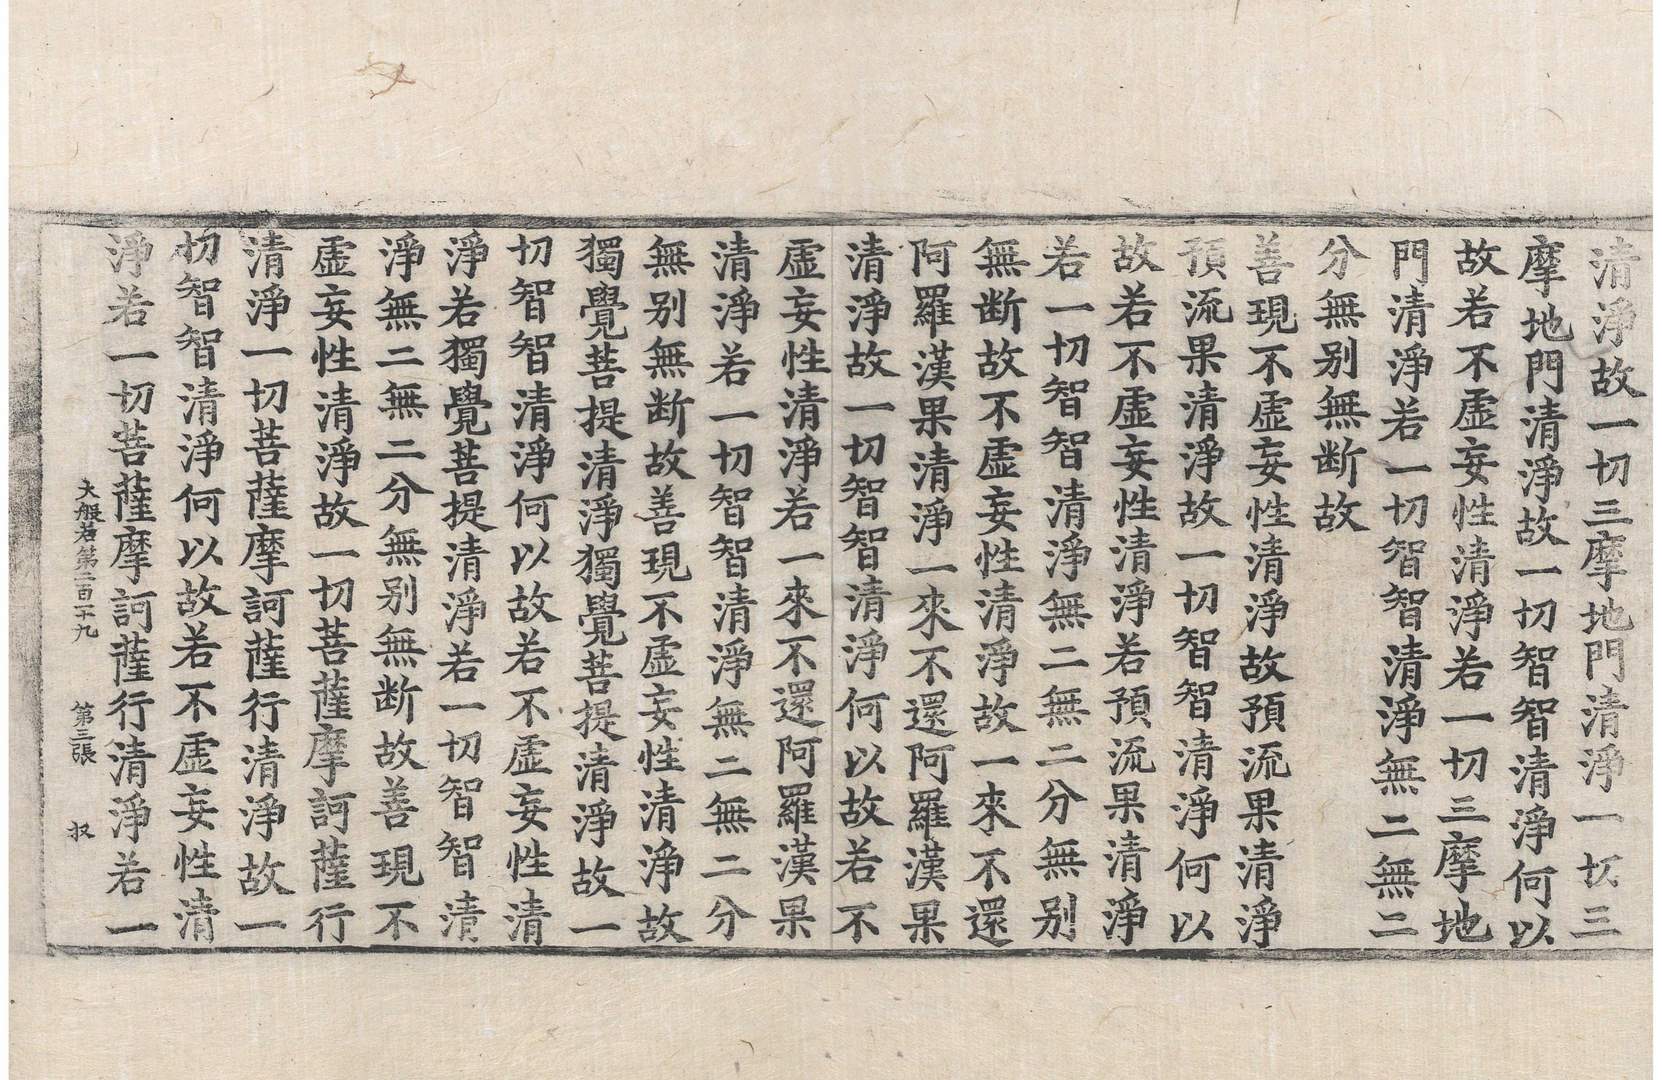 清淨故一切三摩地門清淨一切三
摩地門清淨故一切智智清淨何以
故若不虛妄性清淨若一切三摩地
門清淨若一切智智清淨無二無二
分無别無断故
善現不虛妄性清淨故預流果清淨
預流果清淨故一切智智清淨何以
故若不虛妄性清淨若預流果清淨
若一切智智清淨無二無二分無别
無断故不虛妄性清淨故一來不還
阿羅漢果清淨一來不還阿羅漢果
清淨故一切智智清淨何以故若不
虛妄性清淨若一來不還阿羅漢果
清淨若一切智智清淨無二無二分
無别無断故善現不虛妄性清淨故
獨覺菩提清淨獨覺菩提清淨故一
切智智清淨何以故若不虛妄性清
淨若獨覺菩提清淨若一切智智清
淨無二無二分無别無断故善現不
虛妄性清淨故一切菩薩摩訶薩行
清淨一切菩薩摩訶薩行清淨故一
切智智清淨何以故若不虛妄性清
淨若一切菩薩摩訶薩行清淨若一
大般若第二百五十九 第三張 収